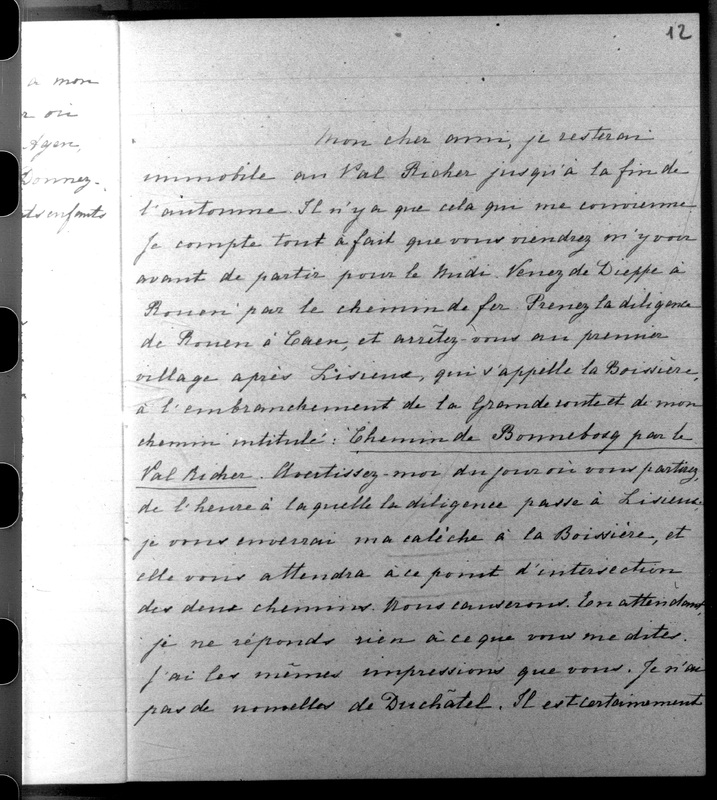 12
a mon
r où
Agen,
Donnez-
ts enfants
Mon cher ami, je resterai
immobile au Val Richer jusqu'à la fin de
l'automne. Il n'y a que cela qui me convienne
Je compte tout à fait que vous viendrez m'y voir
avant de partir pour le Midi. Venez de Dieppe à
Rouen par le chemin de fer. Prenez la diligence
de Rouen à Caen, et arrêtez-vous au premier
village après Lisieux, qui s'appelle la Boissière,
à l'embranchement de la Grande route et de mon
chemin intitulé : Chemin de Bonnebosq par le
Val Richer. Avertissez-moi du jour où vous partirez,
de l'heure à laquelle la diligence passe à Lisieux,
je vous enverrai ma calèche à la Boissière, et
elle vous attendra à ce point d'intersection
des deux chemins. Nous causerons. En attendant,
je ne réponds rien à ce que vous me dites.
J'ai les mêmes impressions que vous. Je n'ai
pas de nouvelles de Duchâtel. Il est certainement